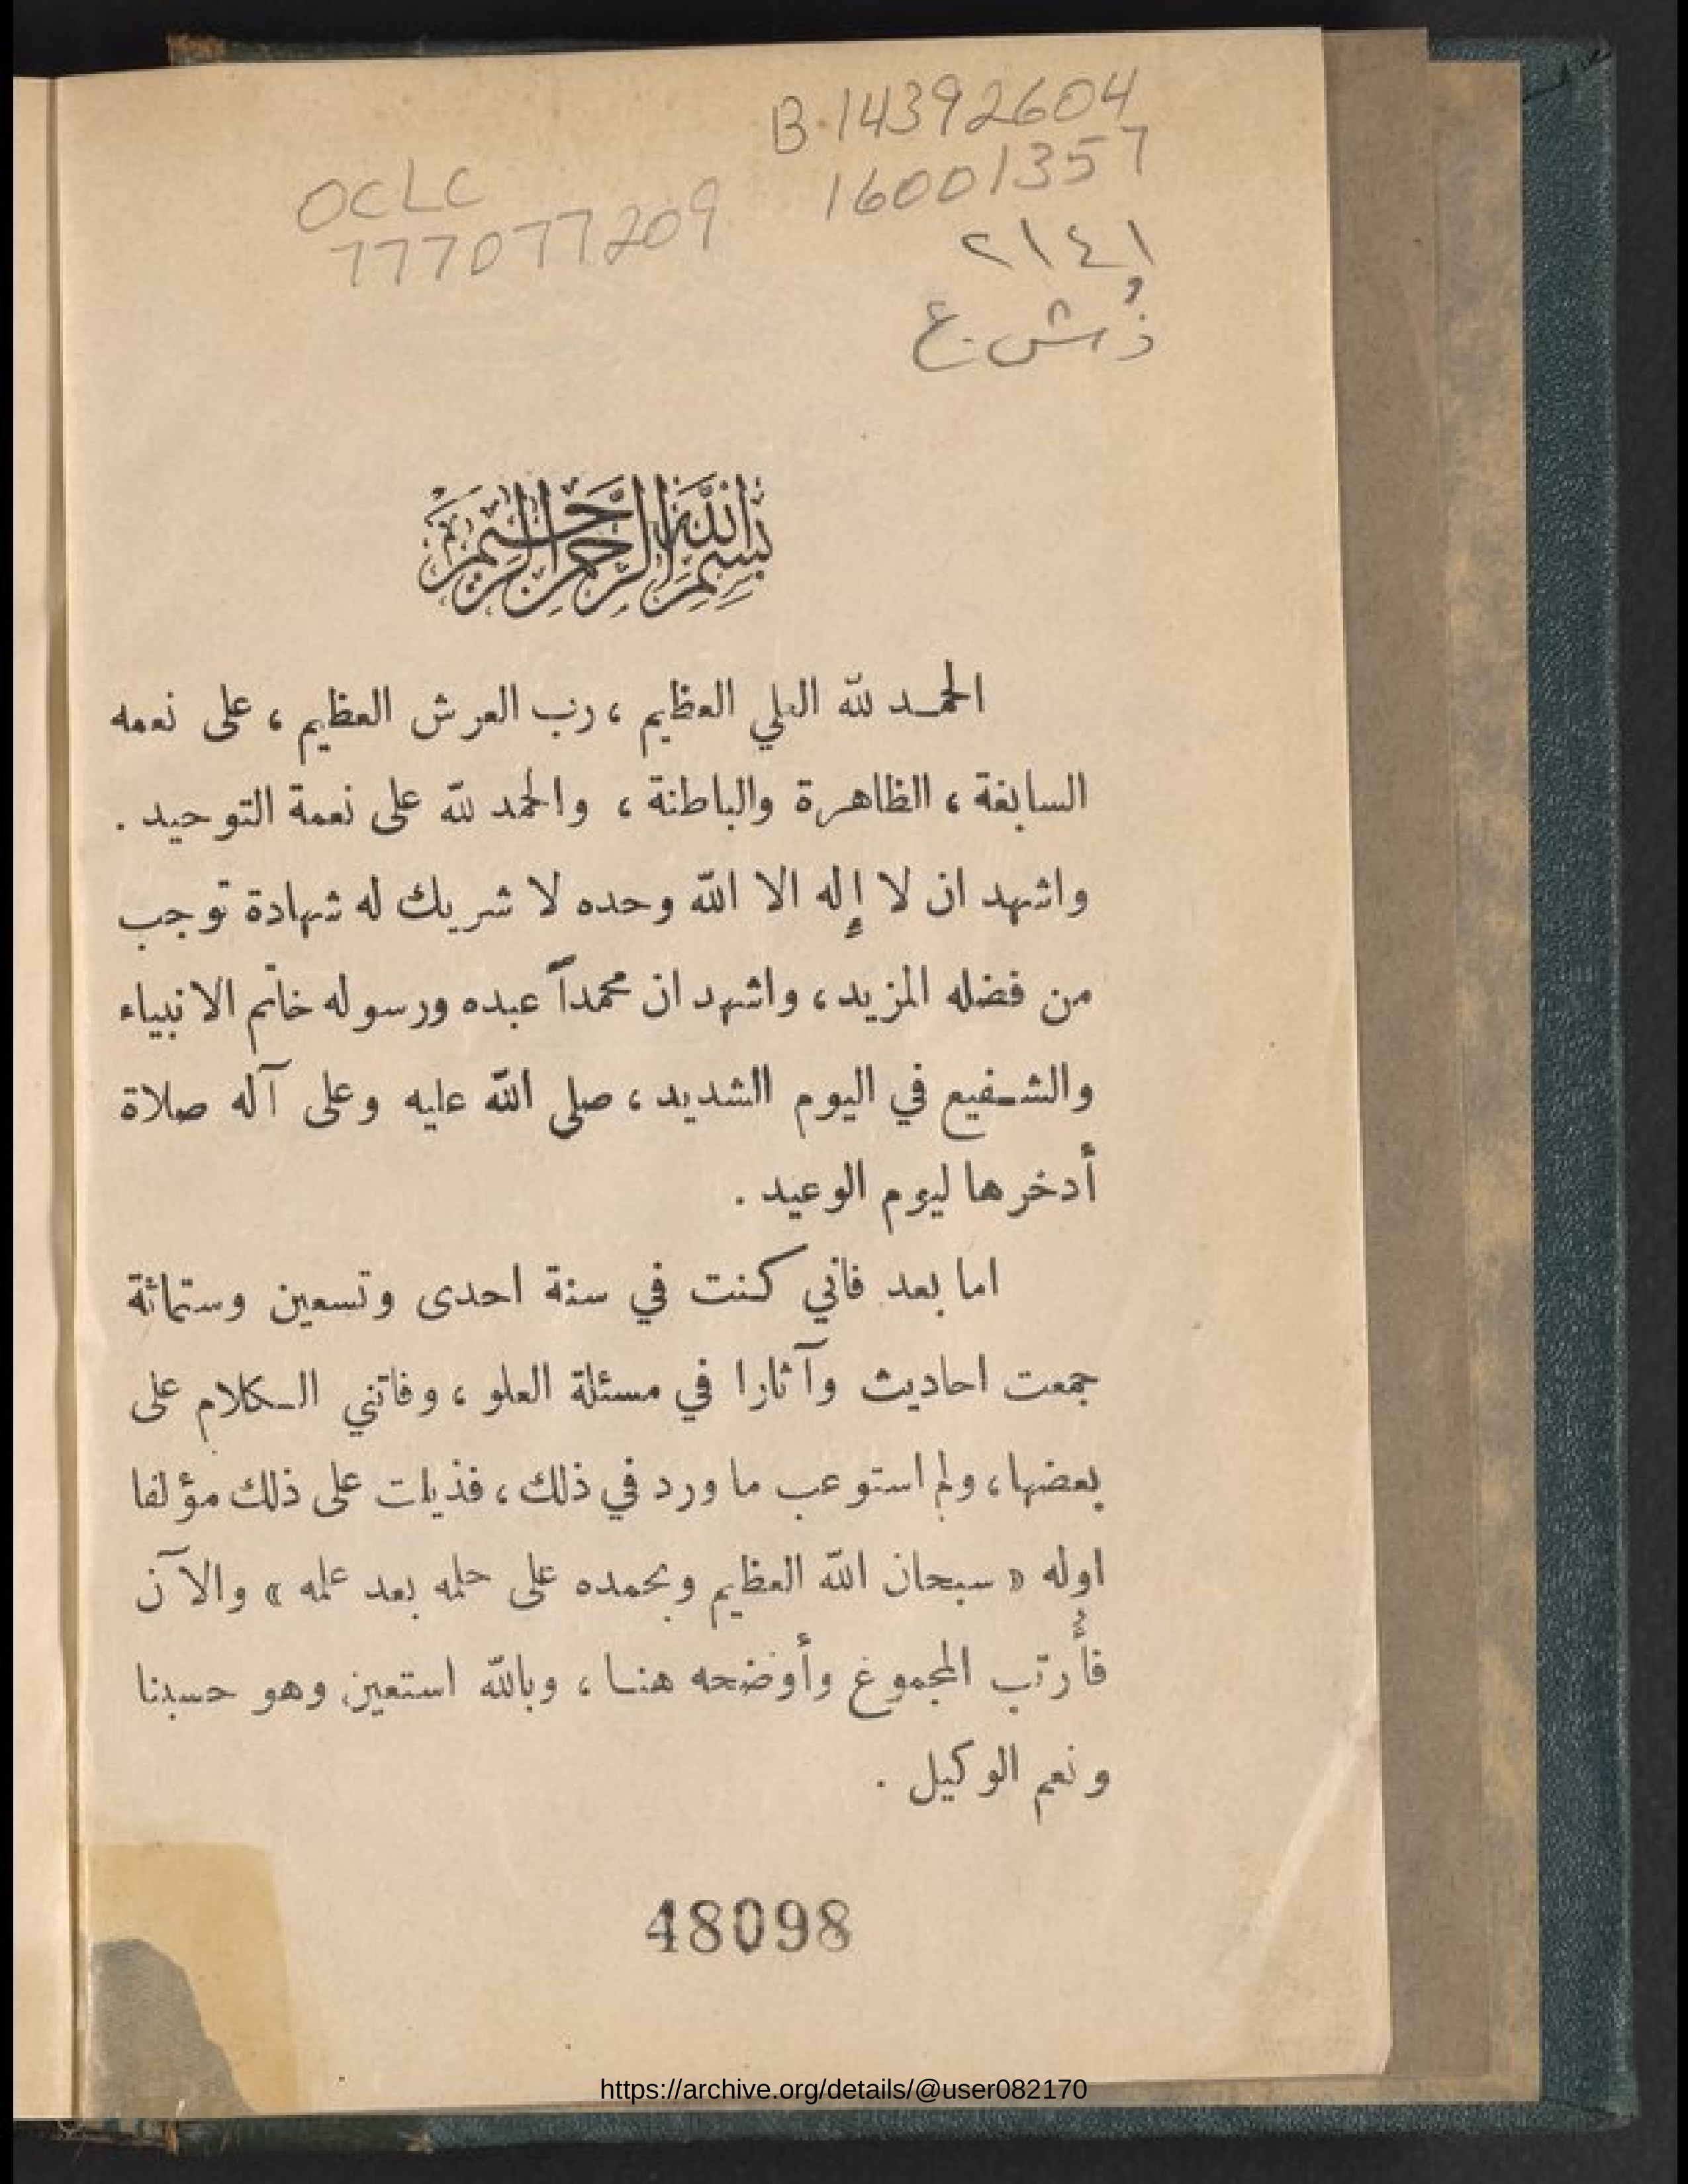 B.14392604
16001357
OCLC
777077209
٢١٤١
ذ ش.ع
بسم الله الرحمن الرحيم
الحمد لله العلي العظيم ، رب العرش العظيم ، على نعمه
السابغة ، الظاهرة والباطنة ، والحمد لله على نعمة التوحيد .
واشهد ان لا إله الا الله وحده لا شريك له شهادة توجب
من فضله المزيد ، واشهد ان محمداً عبده ورسوله خاتم الانبياء
والشفيع في اليوم الشديد ، صلى الله عليه وعلى آله صلاة
أدخرها ليوم الوعيد .
اما بعد فاني كنت في سنة احدى وتسعين وستمائة
جمعت احاديث وآثارا في مسئلة العلو ، وفاتني الكلام على
بعضها ، ولم استوعب ما ورد في ذلك ، فذيلت على ذلك مؤلفا
اوله « سبحان الله العظيم وبحمده على حلمه بعد علمه » والآن
فأرتب المجموع وأوضحه هنا ، وبالله استعين وهو حسبنا
ونعم الوكيل .
48098
https://archive.org/details/@user082170